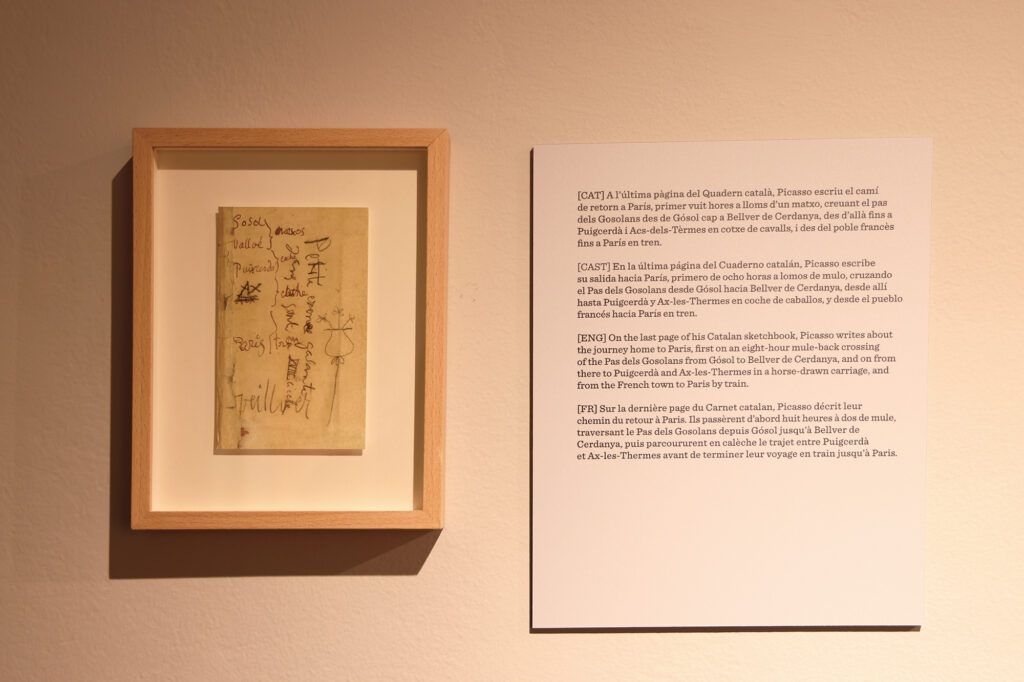 Gosol
Vallvé
Puixcerdà
AX
París
matxos
Petit
[CAT] A l’última pàgina del Quadern català, Picasso escriu el camí
de retorn a París, primer vuit hores a lloms d’un matxo, creuant el pas
dels Gosolans des de Gósol cap a Bellver de Cerdanya, des d’allà fins a
Puigcerdà i Acs-dels-Tèrmes en cotxe de cavalls, i des del poble francès
fins a París en tren.
[CAST] En la última página del Cuaderno catalán, Picasso escribe
su salida hacia París, primero de ocho horas a lomos de mulo, cruzando
el Pas dels Gosolans desde Gósol hacia Bellver de Cerdanya, desde allí
hasta Puigcerdà y Ax-les-Thermes en coche de caballos, y desde el pueblo
francés hacia París en tren.
[ENG] On the last page of his Catalan sketchbook, Picasso writes about
the journey home to Paris, first on an eight-hour mule-back crossing
of the Pas dels Gosolans from Gósol to Bellver de Cerdanya, and on from
there to Puigcerdà and Ax-les-Thermes in a horse-drawn carriage, and
from the French town to Paris by train.
[FR] Sur la dernière page du Carnet catalan, Picasso décrit leur
chemin du retour à Paris. Ils passèrent d’abord huit heures à dos de mule,
traversant le Pas dels Gosolans depuis Gósol jusqu’à Bellver de
Cerdanya, puis parcoururent en calèche le trajet entre Puigcerdà
et Ax-les-Thermes avant de terminer leur voyage en train jusqu’à Paris.